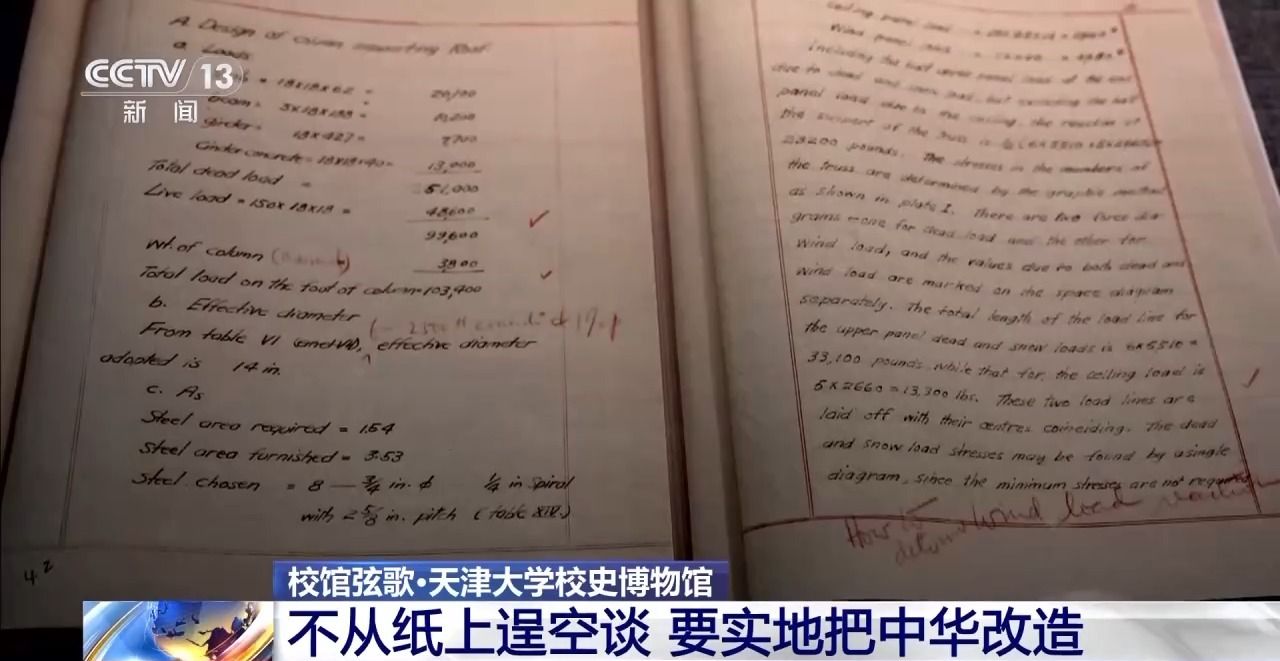 CCTV 13
新闻
A. Design of Column supporting Roof
a. Loads
= 18x18x62 =
20,100
Beam = 3x18x188 =
10,200
Girder = 18x427 =
7700
Cinder concrete = 18x18x40 =
13,000
Total dead load =
51,000
Live load = 150x18x18 =
48,600
99,600
Wt. of column
3800
Total load on the foot of column = 103,400
b. Effective diameter
From table VI (and VII), effective diameter
adopted is 14 in.
c. As
Steel area required = 1.54
Steel area furnished = 3.53
Steel chosen = 8 — ¾ in. ϕ ¼ in spiral
with 2 ⅝ in. pitch (table XIV.)
42
Ceiling panel load =
Wind panel load =
including the half upper panel load at the end
due to dead and snow load, but excluding the half
panel load due to the ceiling, the reaction at
the support of the truss is
23200 pounds. The stresses in the members of
the truss are determined by the graphic method
as shown in plate I. There are two force dia-
grams - one for dead load and the other for
wind load, and the values due to both dead and
wind load are marked on the space diagram
separately. The total length of the load line for
the upper panel dead and snow loads is 6x5510 =
33,100 pounds while that for the ceiling load is
5x2660 = 13,300 lbs. These two load lines are
laid off with their centres coinciding. The dead
and snow load stresses may be found by a single
diagram, since the minimum stresses are not required
How is
wind load
校馆弦歌·天津大学校史博物馆
不从纸上逞空谈 要实地把中华改造